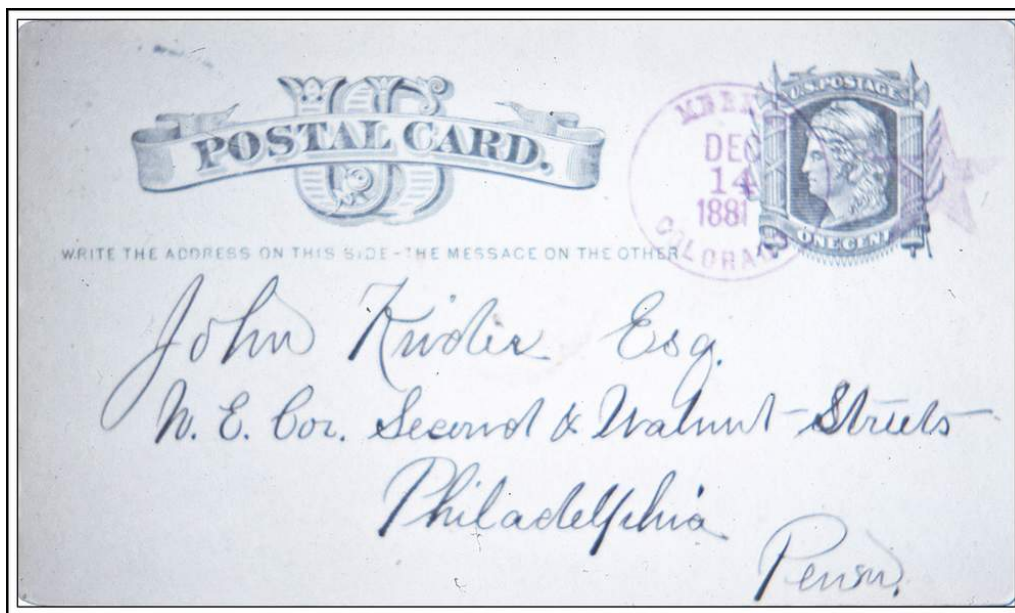 US
POSTAL CARD.
U.S. POSTAGE
DEC
14
1881
COLORADO
ONE CENT
WRITE THE ADDRESS ON THIS SIDE - THE MESSAGE ON THE OTHER
John Krider Esq.
N. E. Cor. Second & Walnut Streets
Philadelphia
Penn.